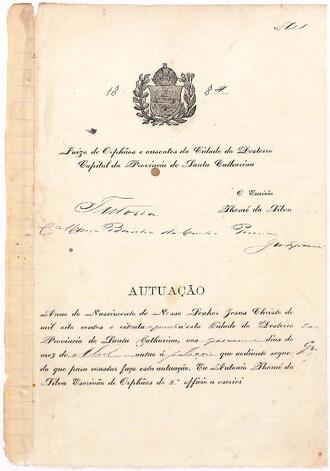 18 84
Juizo de Orphãos e ausentes da Cidade do Desterro
Capital da Provincia de Santa Catharina
O Escrivão
Thomé da Silva
Tutoria
AUTUAÇÃO
Anno do Nascimento de Nosso Senhor Jesus Christo de
mil oito centos e oitenta e quatro nesta Cidade do Desterro
Provincia de Santa Catharina, aos dias do
mez de Abril autuo a petição que adiante segue
do que para constar faço esta autuação. Eu Antonio Thomé da
Silva Escrivão de Orphãos do 2º officio a escrevi